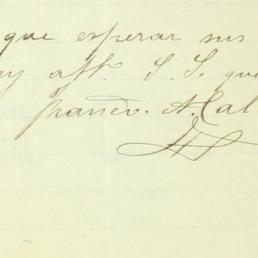 que esperar sus
y atto. S. S. que
Franco. A. Cal